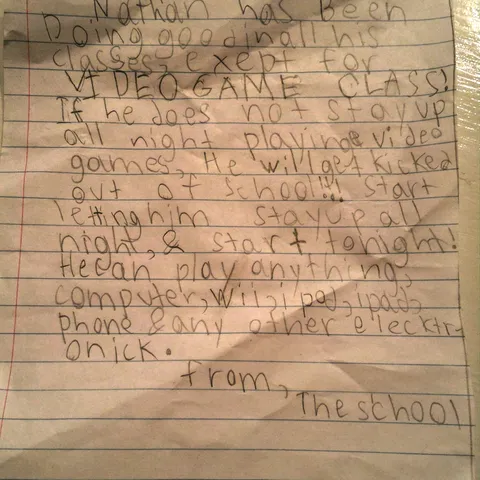 Nathan has been
Doing good in all his
classes, exept for
VIDEO GAME CLASS!
If he does not stay up
all night playing video
games, He will get kicked
out of school!!! Start
letting him stay up all
night, & start tonight!
He can play anything,
computer, wii, ipod, ipad,
phone & any other elecktr-
onick.
from,
The school